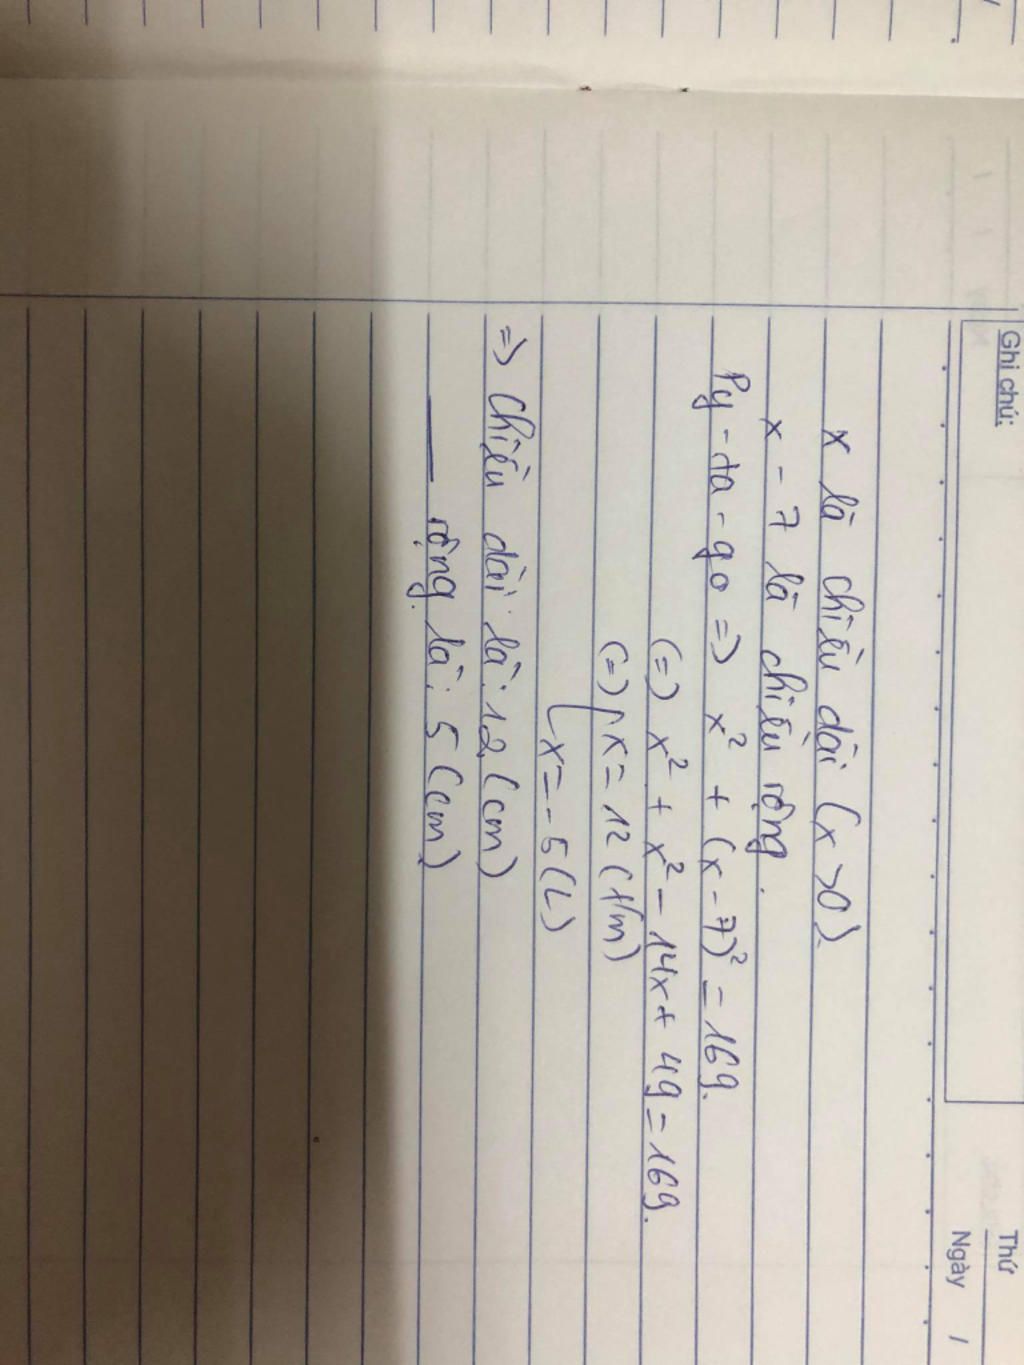 Ghi chú:
Thứ
Ngày /
x là chiều dài (x >0).
x - 7 là chiều rộng.
Py-ta-go => x² + (x-7)² = 169.
(=) x² + x² - 14x + 49 = 169.
(=) [ x = 12 (t/m)
[ x = -5 (L)
=> Chiều dài là: 12 (cm)
___ rộng là: 5 (cm)